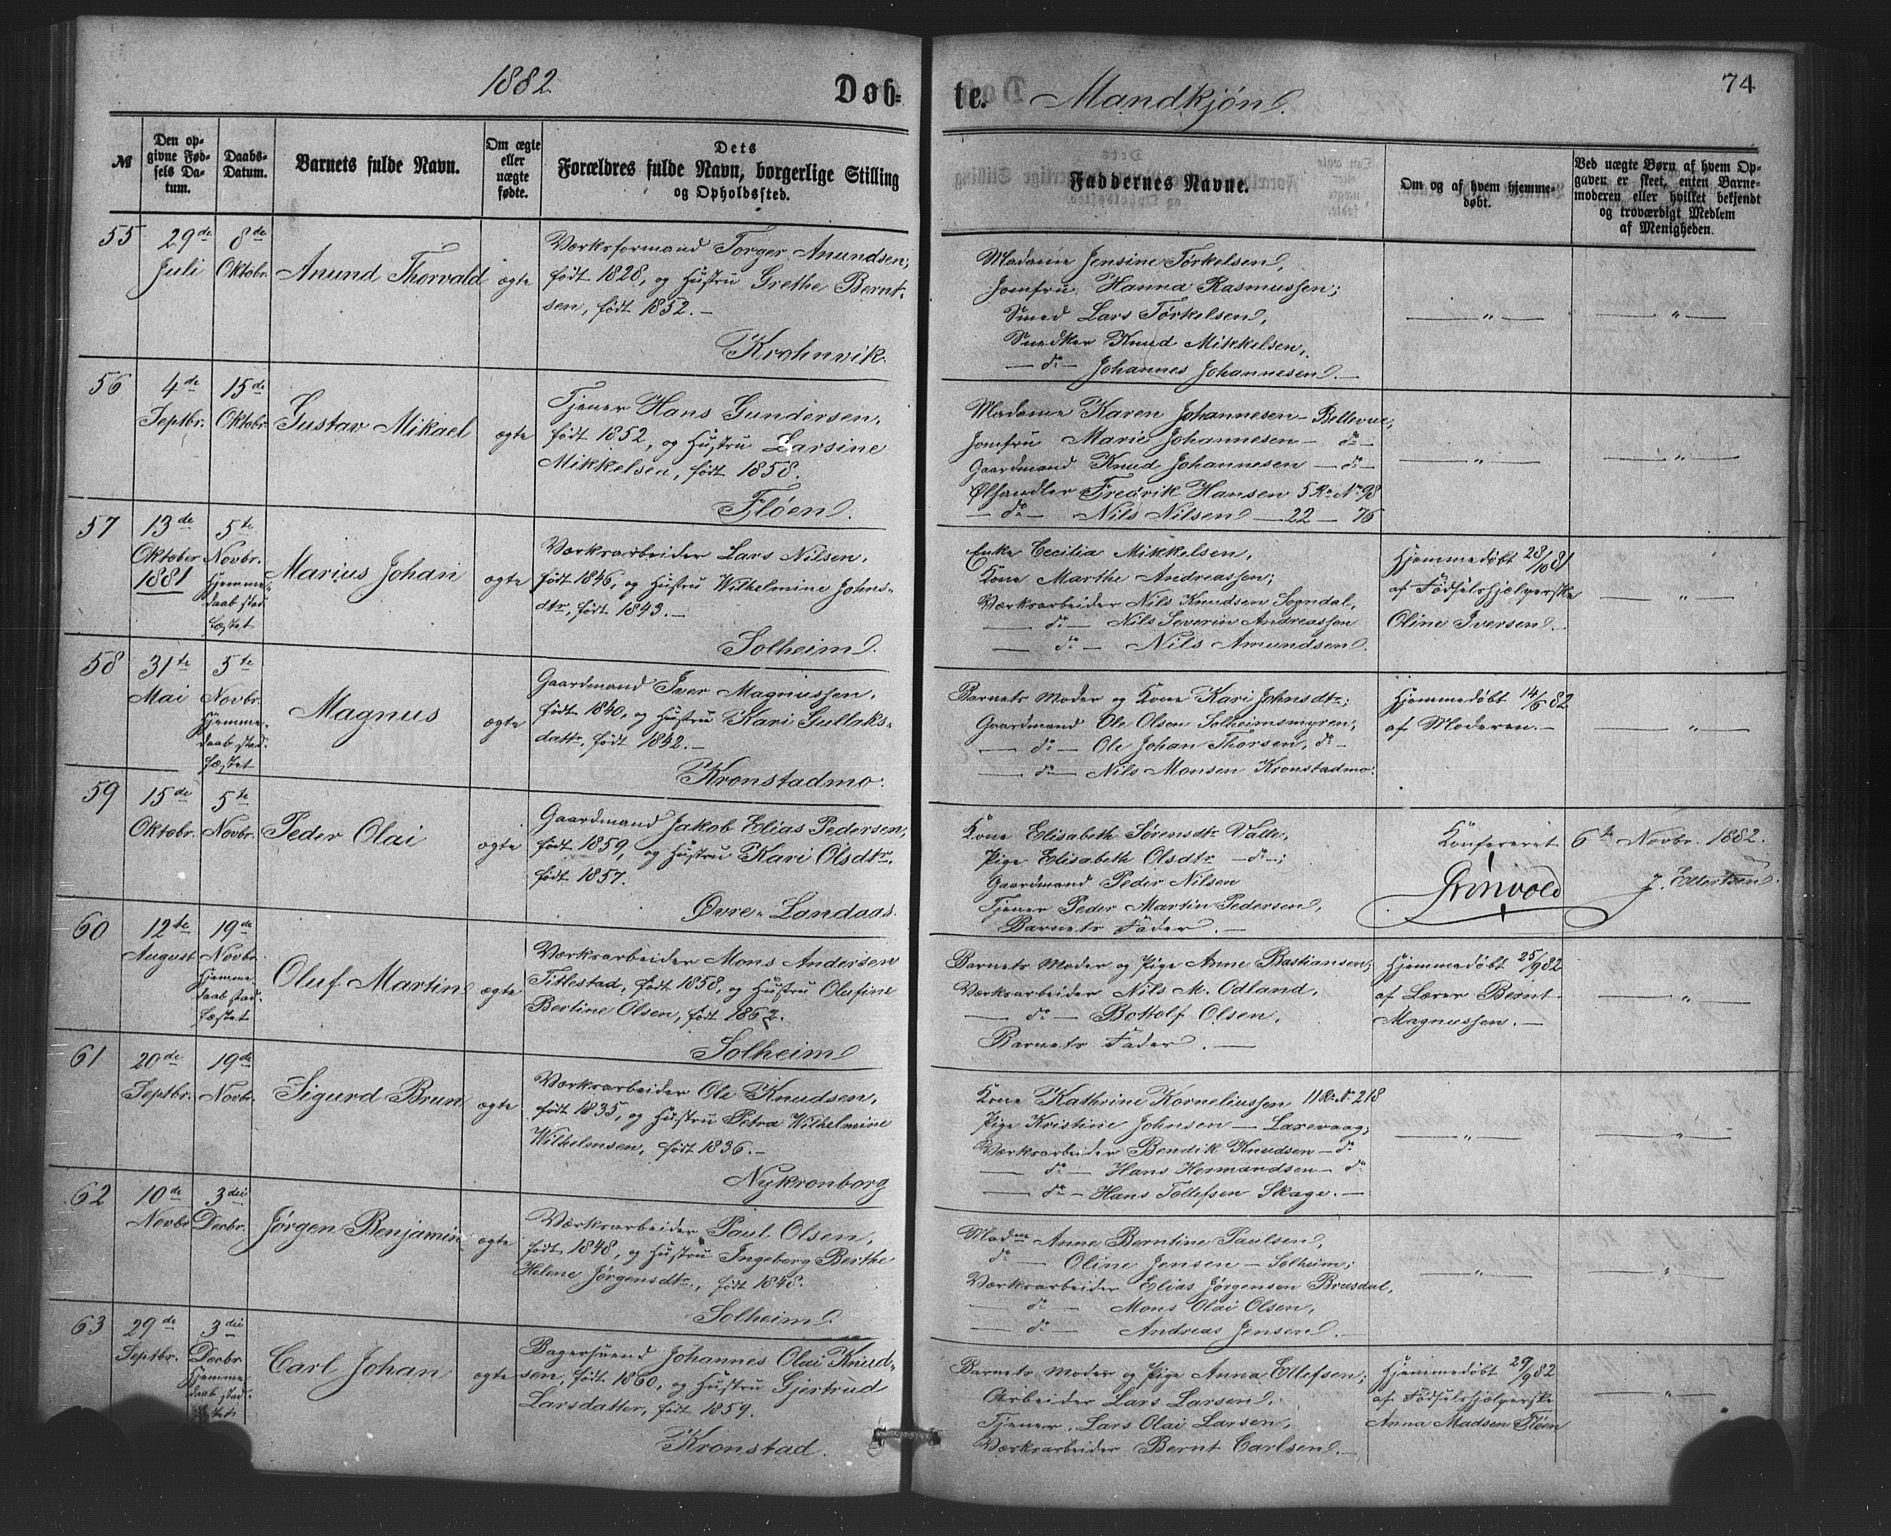 1882 Døb-
№
Den op-
givne Fød-
sels Da-
tum.
Daabs-
Datum.
Barnets fulde Navn.
Om ægte
eller
uægte
fødte.
Dets
Forældres fulde Navn, borgerlige Stilling
og Opholdssted.
55
29de
Juli
8de
Oktobr.
Anund Thorvald
ægte
Værksformand Torger Anundsen,
født 1828, og Hustru Grethe Bernt-
sen, født 1852.—
Krohnvik.
56
4de
Septbr.
15de
Oktobr.
Gustav Mikael
ægte
Tjener Hans Gundersen,
født 1852, og Hustru Larsine
Mikkelsen, født 1858.
Fløen.
57
13de
Oktober
1881
5te
Novbr.
Hjemme-
daab stad-
fæstet
Marius Johan
ægte
Værksarbeider Lars Nilsen,
født 1846, og Hustru Wilhelmine Johns-
dtr, født 1843.—
Solheim.
58
31te
Mai
5te
Novbr.
Hjemme-
daab stad-
fæstet
Magnus
ægte
Gaardmand Iver Magnussen,
født 1840, og Hustru Kari Gullaks-
datter, født 1842.—
Kronstadmo.
59
15de
Oktobr.
5te
Novbr.
Peder Olai
ægte
Gaardmand Jakob Elias Pedersen,
født 1859, og Hustru Kari Olsdtr.
født 1857.
Øvre-Landaas.
60
12te
August
19de
Novbr.
Hjemme-
daab stad-
fæstet
Oluf Martin
ægte
Værksarbeider Mons Andersen
Tittestad, født 1858, og Hustru Olufine
Bertine Olsen, født 1862.
Solheim
61
20de
Septbr.
19de
Novbr.
Sigurd Brun
ægte
Værksarbeider Ole Knudsen,
født 1835, og Hustru Petra Wilhelmine
Wilhelmsen, født 1836.—
Nykronborg
62
10de
Novbr
3die
Decbr.
Jørgen Benjamin
ægte
Værksarbeider Paul Olsen,
født 1848, og Hustru Ingeborg Berthe
Helene Jørgensdtr., født 1848.
Solheim.
63
29de
Septbr.
3die
Decbr
Hjemme-
daab stad-
fæstet
Carl Johan
ægte
Bagersvend Johannes Olai Knud-
sen, født 1860, og Hustru Gjertrud
Larsdatter, født 1859.
Kronstad.
te. Mandkjøn.
74
Faddernes Navne.
Om og af hvem hjemme-
døbt.
Ved uægte Børn af hvem Op-
gaven er skeet, enten Barne-
moderen eller hvilket bekjendt
og troværdigt Medlem
af Menigheden.
Madame Jensine Tørkelsen,
Jomfru Hanna Rasmussen;
Smed Lars Tørkelsen,
Snedker Knud Mikkelsen,
— do — Johannes Johannesen.—
— " —
— " —
Madame Karen Johannesen — Bellevue,
Jomfru Marie Johannesen — do —
Gaardmand Knud Johannesen — do —
Ølhandler Fredrik Hansen 5 Ro No 98
— do — Nils Nilsen — 22 — 76
— " —
— " —
Enke Cecilia Mikkelsen,
Kone Marthe Andreassen;
Værksarbeider Nils Knudsen Sogndal,
— do — Nils Severin Andreassen
— do — Nils Amundsen.
Hjemmedøbt 28/10 81
af Fødselshjælperske
Oline Iversen.
— " —
Barnets Moder og Kone Kari Johnsdtr;
Gaardmand Ole Olsen Solheimsmyren,
— do — Ole Johan Thorsen, do —
— do — Nils Monsen Kronstadmo.
Hjemmedøbt 14/6 82
af Moderen.—
— " —
Kone Elisabeth Sørensdtr Valle,
Pige Elisabeth Olsdtr — do —;
Gaardmand Peder Nilsen
Tjener Peder Martin Pedersen,
Barnets Fader.—
Konfereret 6te Novbr. 1882.
Grönvold J. Ellertsen.
Barnets Moder og Pige Anne Bastiansen;
Værksarbeider Nils M. Odland,
— do — Bottolf Olsen,
Barnets Fader.—
Hjemmedøbt 25/9 82
af Lærer Bernt
Magnussen.—
— " —
Kone Kathrine Korneliussen 11 Ro No 218
Pige Kristine Johnsen — Laxevaag;
Værksarbeider Bendik Knudsen — do
— do — Hans Hermandsen — do
— do — Hans Tollefsen Skage.—
— " —
— " —
Madme Anne Berntine Paulsen,
do Oline Jensen — Solheim;
Værksarbeider Elias Jørgensen Brusdal,
— do — Mons Olai Olsen,
— do — Andreas Jensen.—
— " —
— " —
Barnets Moder og Pige Anna Ellefsen;
Arbeider Lars Larsen,
Tjener Lars Olai Larsen,
Værksarbeider Bernt Carlsen.—
Hjemmedøbt 29/9 82
af Fødselshjælperske
Anna Madsen Fløen
— " —